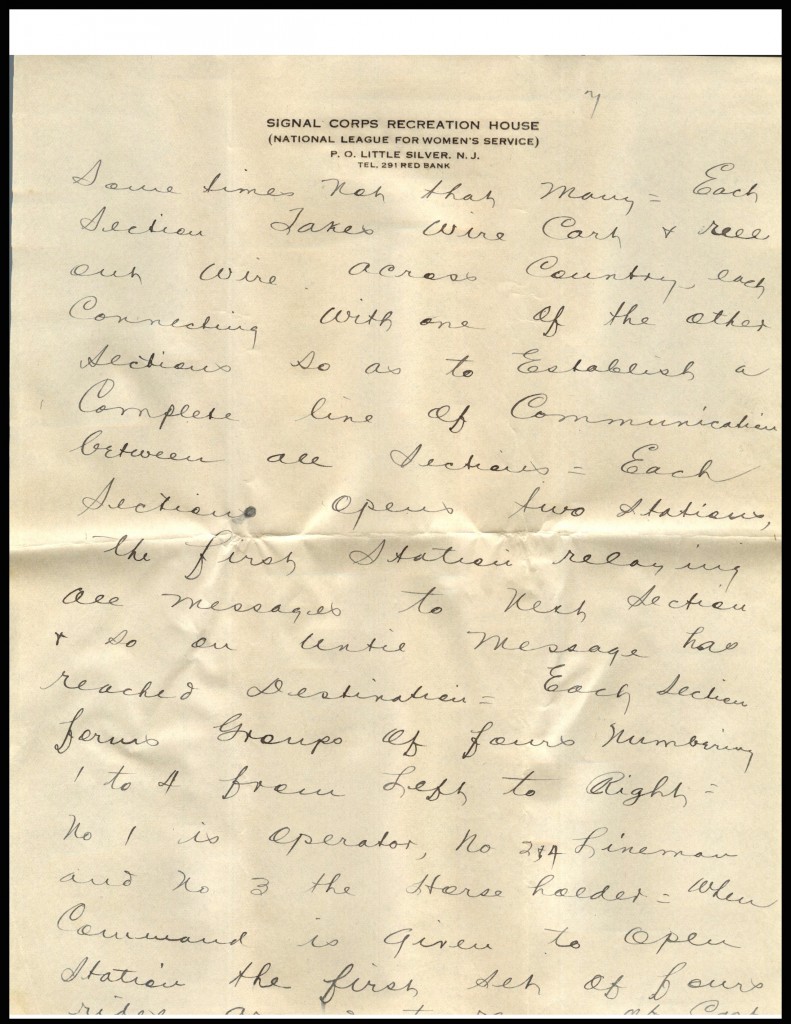 7
SIGNAL CORPS RECREATION HOUSE
(NATIONAL LEAGUE FOR WOMEN'S SERVICE)
P. O. LITTLE SILVER, N. J.
TEL. 291 RED BANK
Some times not that many = Each
Section Takes Wire Cart & reel
out Wire across Country, each
Connecting With one of the other
Sections so as to Establish a
Complete line of Communication
between all Sections = Each
Section opens two Stations,
the first Station relaying
all messages to next Section
& so on until Message has
reached Destination = Each Section
forms Groups of fours Numbering
1 to 4 from Left to Right =
No 1 is Operator, No 2&4 Lineman
and No 3 the Horse holder = When
Command is Given to Open
Station the first set of fours